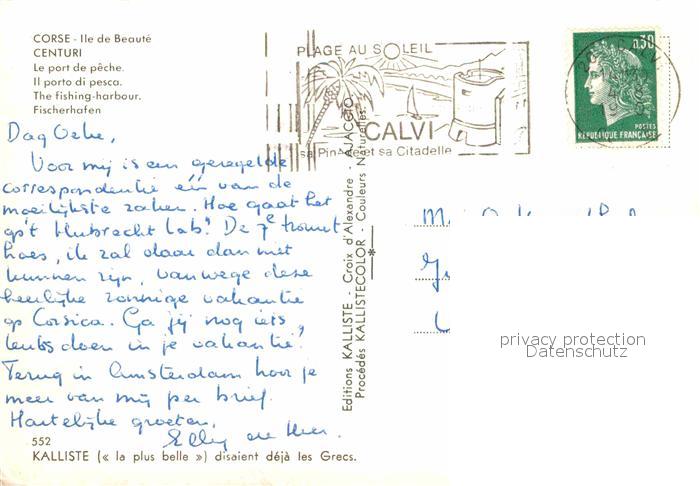 CORSE - Ile de Beauté
CENTURI
Le port de pêche.
Il porto di pesca.
The fishing-harbour.
Fischerhafen
PLAGE AU SOLEIL
CALVI
sa Pinède et sa Citadelle
0,30
POSTES
REPUBLIQUE FRANÇAISE
Dag
Voor mij is een geregelde
correspondentie één van de
moeilijkste zaken. Hoe gaat het
op't Hubrecht Lab? De 7e
hoes, ik zal daar dan niet
kunnen zijn, vanwege deze
heerlijke zonnige vakantie
op Corsica. Ga jij nog iets
leuks doen in je vakantie?
Terug in Amsterdam hoor je
meer van mij per brief.
Hartelijke groeten,
Elly
Editions KALLISTE - Croix d'Alexandre - AJACCIO
Procédés KALLISTECOLOR - Couleurs Naturelles
privacy protection
Datenschutz
552
KALLISTE (« la plus belle ») disaient déjà les Grecs.